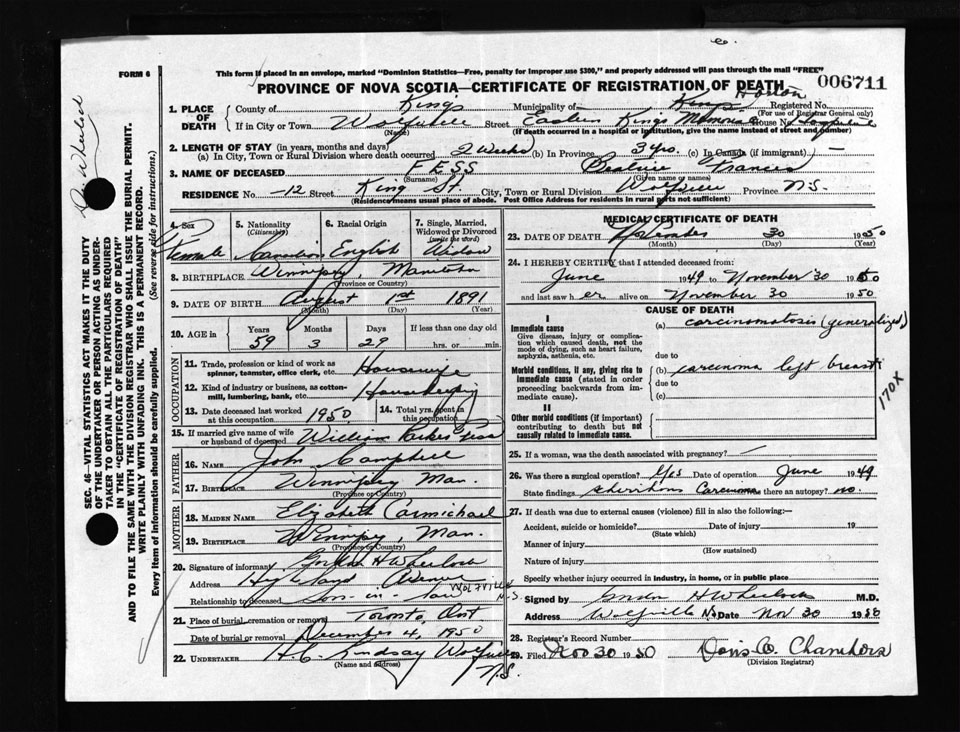 FORM 6
This form if placed in an envelope, marked "Dominion Statistics—Free, penalty for improper use $300," and properly addressed will pass through the mail "FREE"
PROVINCE OF NOVA SCOTIA—CERTIFICATE OF REGISTRATION OF DEATH 006711
Horton
1. PLACE OF DEATH { County of Kings Municipality of Kings Registered No.
(For use of Registrar General only)
If in City or Town Wolfville Street Eastern Kings Memorial House No. Hospital
(Name) (If death occurred in a hospital or institution, give the name instead of street and number)
2. LENGTH OF STAY (in years, months and days)
(a) In City, Town or Rural Division where death occurred 2 Weeks (b) In Province 3 yrs. (c) In Canada (if immigrant) —
3. NAME OF DECEASED FESS Beatrice Frances
(Surname) (Given name or names)
RESIDENCE No. —12 Street King St. City, Town or Rural Division Wolfville Province N.S.
(Residence means usual place of abode. Post Office Address for residents in rural parts not sufficient)
4. Sex Female
5. Nationality (Citizenship) Canadian
6. Racial Origin English
7. Single, Married, Widowed or Divorced (write the word) Widow
8. BIRTHPLACE Winnipeg, Manitoba
(Province or Country)
9. DATE OF BIRTH August 1st 1891
(Month) (Day) (Year)
10. AGE in Years 59 Months 3 Days 29 If less than one day old hrs. or min.
OCCUPATION
11. Trade, profession or kind of work as spinner, teamster, office clerk, etc. Housewife
12. Kind of industry or business, as cotton-mill, lumbering, bank, etc. Housekeeping
13. Date deceased last worked at this occupation 1950
14. Total yrs. spent in this occupation
15. If married give name of wife or husband of deceased William Parkes Fess
FATHER
16. NAME John Campbell
17. BIRTHPLACE Winnipeg Man.
(Province or Country)
MOTHER
18. MAIDEN NAME Elizabeth Carmichael
19. BIRTHPLACE Winnipeg, Man.
(Province or Country)
20. Signature of informant Gordon H Wheelock
Address Highland Avenue WOLFVILLE N.S.
Relationship to deceased son-in-law
21. Place of burial, cremation or removal Toronto, Ont
Date of burial or removal December 4, 1950
22. UNDERTAKER H.C. Lindsay Wolfville N.S.
(Name and address)
MEDICAL CERTIFICATE OF DEATH
23. DATE OF DEATH November 30 1950
(Month) (Day) (Year)
24. I HEREBY CERTIFY that I attended deceased from:
June 1949 to November 30 1950
and last saw her alive on November 30 1950
CAUSE OF DEATH
I
Immediate cause
Give disease, injury or complication which caused death, not the mode of dying, such as heart failure, asphyxia, asthenia, etc.
(a) carcinomatosis (generalized)
due to
Morbid conditions, if any, giving rise to immediate cause (stated in order proceeding backwards from immediate cause).
(b) carcinoma left breast
due to
(c)
170X
II
Other morbid conditions (if important) contributing to death but not causally related to immediate cause.
25. If a woman, was the death associated with pregnancy? —
26. Was there a surgical operation? Yes Date of operation June 1949
State findings Carcinoma there an autopsy? no.
27. If death was due to external causes (violence) fill in also the following:—
Accident, suicide or homicide? Date of injury 19
(State which)
Manner of injury
(How sustained)
Nature of injury
Specify whether injury occurred in industry, in home, or in public place
Signed by Gordon H Wheelock M.D.
Address Wolfville N.S. Date Nov 30 1950
28. Registrar's Record Number
29. Filed Nov 30 1950 Doris O. Chambers
(Division Registrar)
Dr. Wheelock
SEC. 46—VITAL STATISTICS ACT MAKES IT THE DUTY
OF THE UNDERTAKER OR PERSON ACTING AS UNDERTAKER TO OBTAIN ALL THE PARTICULARS REQUIRED
IN THE "CERTIFICATE OF REGISTRATION OF DEATH"
AND TO FILE THE SAME WITH THE DIVISION REGISTRAR WHO SHALL ISSUE THE BURIAL PERMIT.
WRITE PLAINLY WITH UNFADING INK. THIS IS A PERMANENT RECORD.
Every item of information should be carefully supplied. (See reverse side for instructions.)